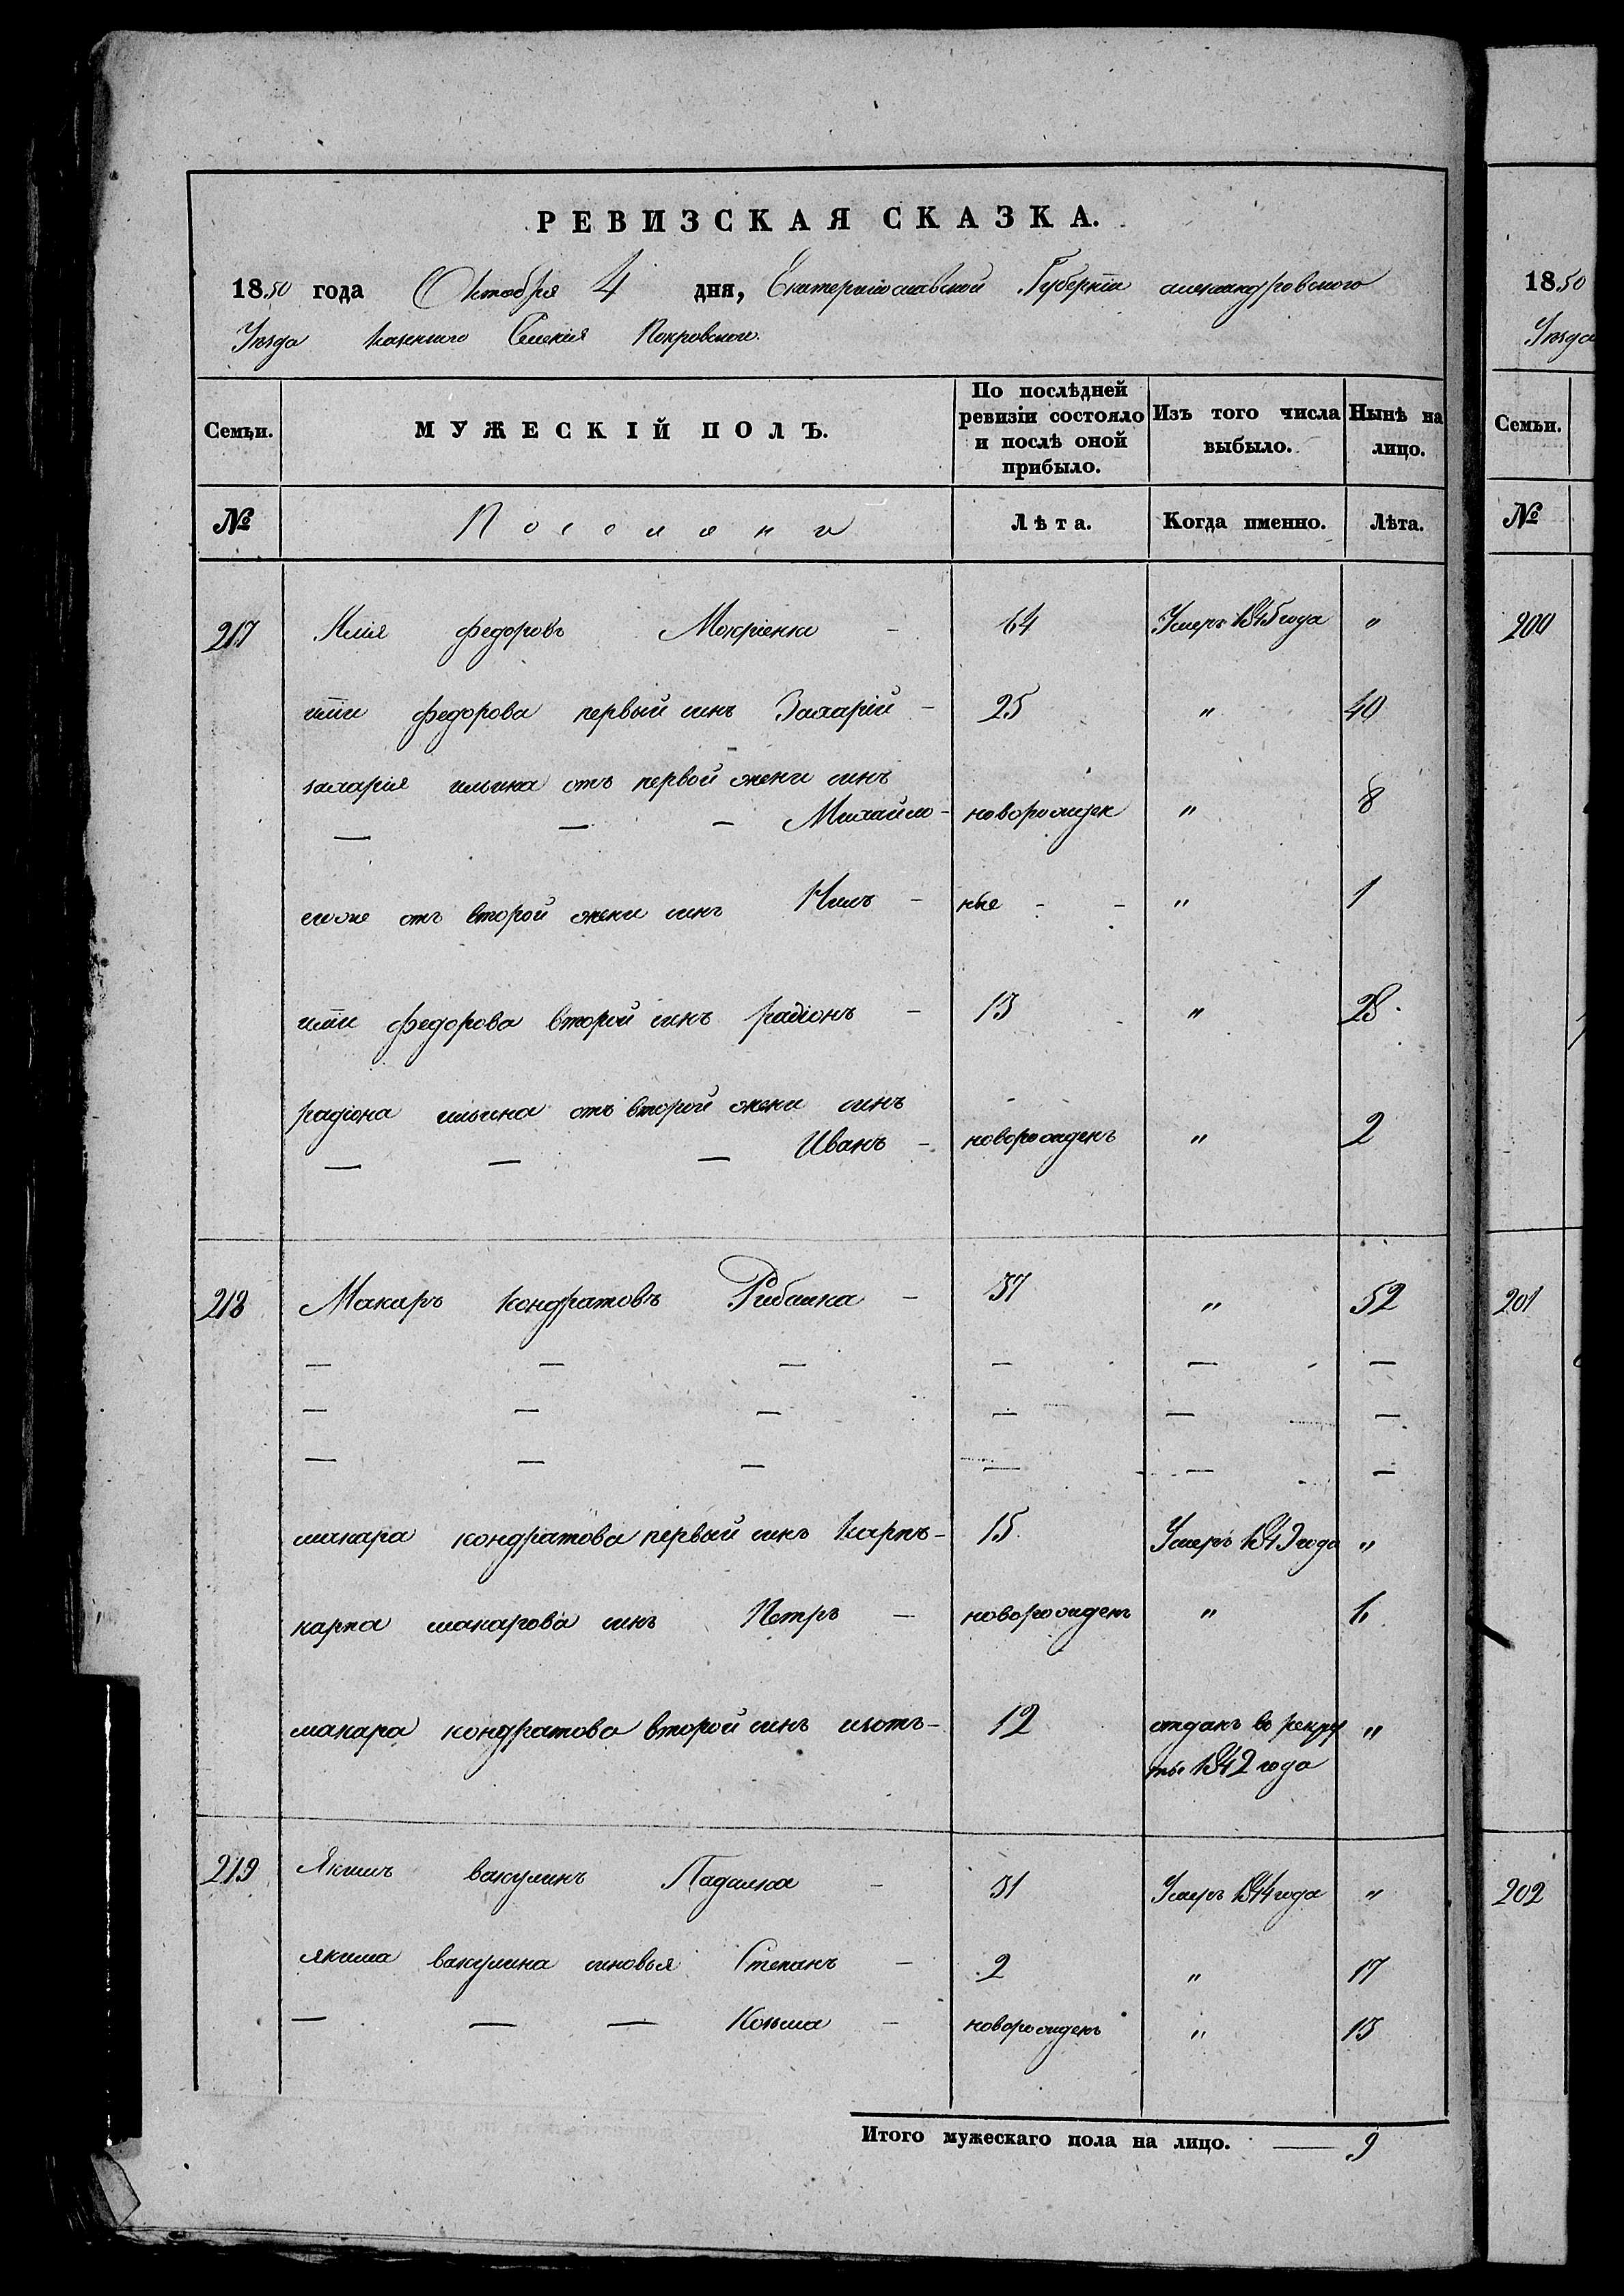 РЕВИЗСКАЯ СКАЗКА.
1850 года Октября 4 дня, Екатеринославской Губерніи александровского
Уезда казенного Селенія Покровского.
Семьи. МУЖЕСКІЙ ПОЛЪ. По послѣдней ревизіи состояло и послѣ оной прибыло. Изъ того числа выбыло. Нынѣ на лицо.
№ Поселяни Лѣта. Когда именно. Лѣта.
217 Илія федоровъ Мокріенко - 64 Умеръ 1845 года "
иліи федорова первый синъ Захарій - 25 " 40
захарія ильина отъ первой жени синъ
— — — Михайло - новорожден " 8
егоже отъ второй жени синъ Нилъ - ные - - " 1
иліи федорова второй синъ радіонъ - 13 " 28
радіона ильина отъ второй жени синъ
— — — Иванъ - новорожденъ " 2
218 Макаръ Кондратовъ Рибалка - 37 " 52
— — — — — —
— — — — — —
— — — — — —
макара кондратова первый синъ Карпъ - 15 Умеръ 1849 года "
карпа макарова синъ Петръ - новорожденъ " 1
макара кондратова второй синъ изотъ - 12 отданъ въ рекру "
ты 1842 года
219 Якимъ вакулинъ Падалка - 31 Умеръ 1844 года "
якима вакулина синовья Степанъ - 2 " 17
— — — Козьма - новорожденъ " 13
Итого мужескаго пола на лицо. — 9
1850
Уезда
Семьи.
№
200
201
202